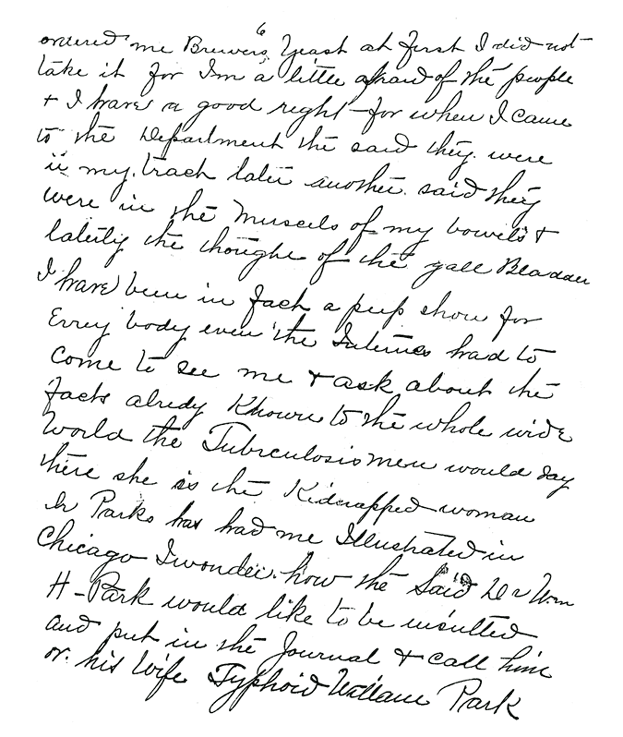 6
ordered me Brewers Yeast at first I did not
take it for I'm a little afraid of the people
+ I have a good right - for when I came
to the Department the said they were
in my. track later another said they
were in the Muscels of my bowels +
laterly the thought of the gall Bladder
I have been in fact a peep show for
Evrey body even the Internes had to
come to see me + ask about the
facts alredy Known to the whole wide
World the Tuberculosis men would say
there she is the Kidnapped woman
Dr Parks has had me Illustrated in
Chicago I wonder how the Said Dr Wm
H - Park would like to be insulted
and put in the Journal + call him
or his wife Typhoid William Park